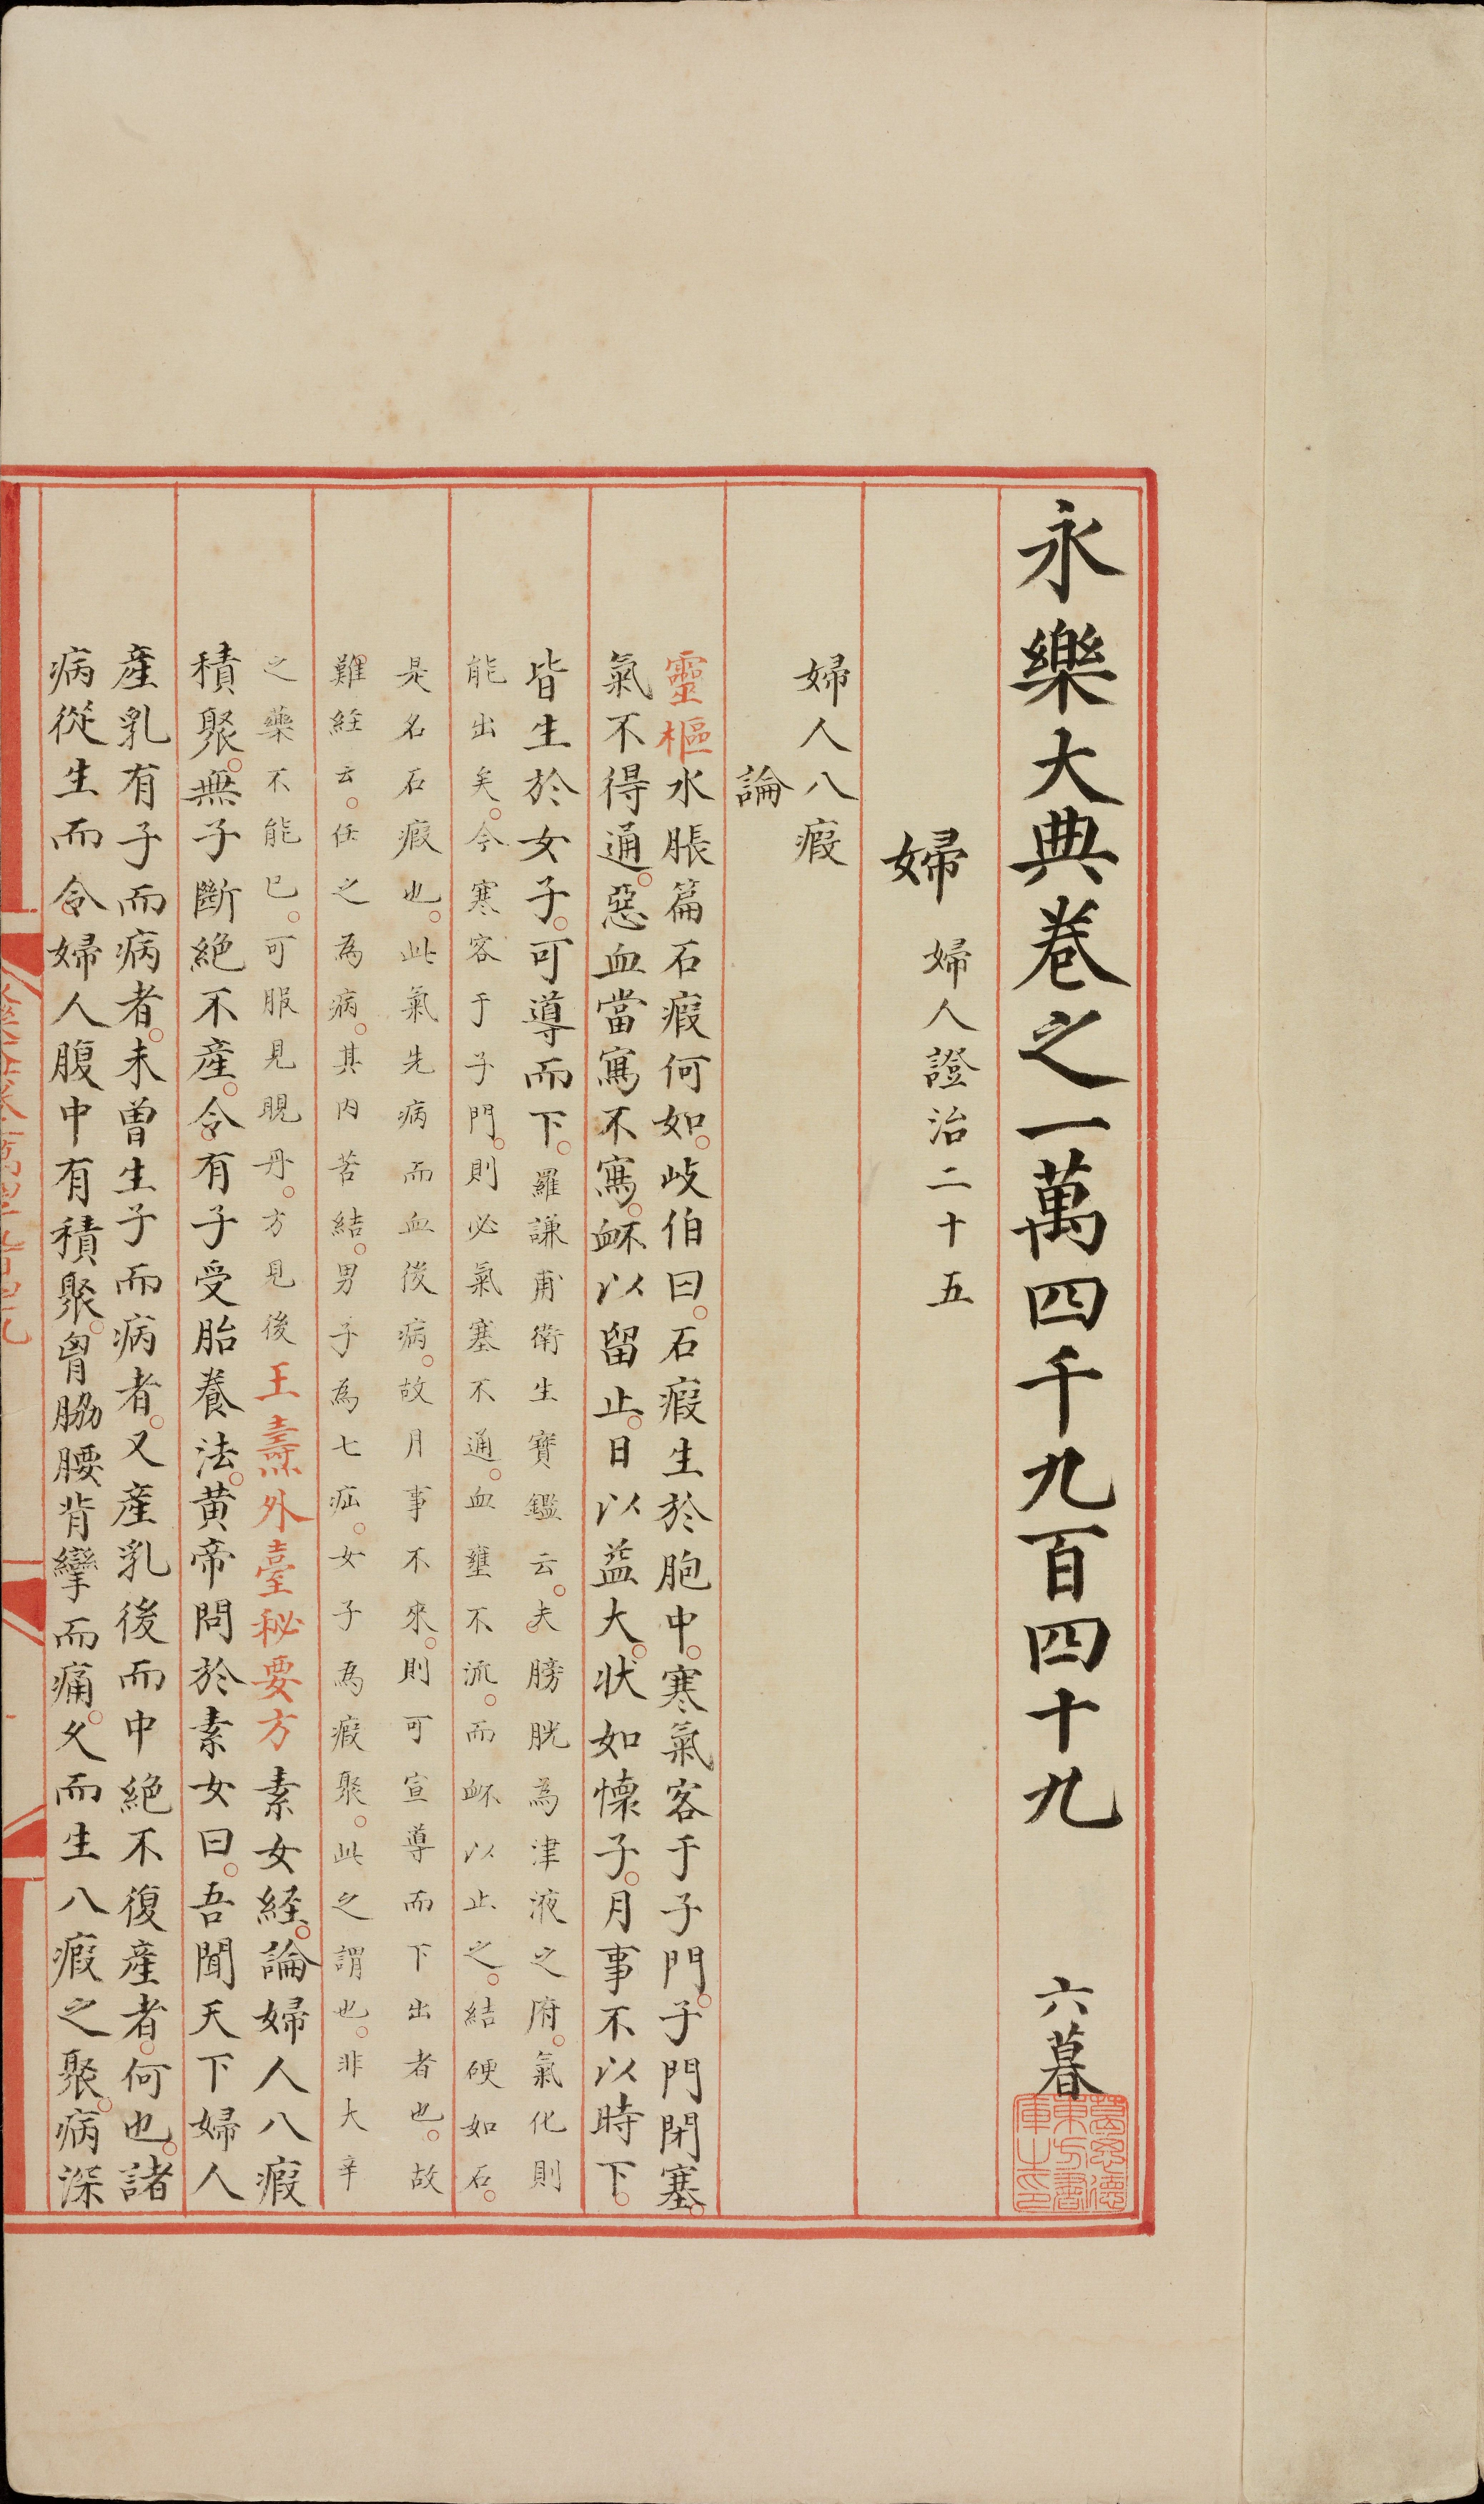 永樂大典卷之一萬四千九百四十九 六暮
婦 婦人證治二十五
婦人八瘕
論
靈樞水脹篇石瘕何如岐伯曰石瘕生於胞中寒氣客于子門子門閉塞
氣不得通惡血當寫不寫衃以留止日以益大狀如懷子月事不以時下
皆生於女子可導而下羅謙甫衛生寶鑑云夫膀胱為津液之府氣化則
能出矣今寒客于子門則必氣塞不通血壅不流而衃以止之結硬如石
是名石瘕也此氣先病而血後病故月事不來則可宣導而下出者也故
難經云任之為病其內苦結男子為七疝女子為瘕聚此之謂也非大辛
之藥不能已可服見晛丹方見後王燾外臺秘要方素女經論婦人八瘕
積聚無子斷絕不產令有子受胎養法黃帝問於素女曰吾聞天下婦人
產乳有子而病者未曾生子而病者又產乳後而中絕不復產者何也諸
病從生而令婦人腹中有積聚胷脇腰背攣而痛久而生八瘕之聚病深
葛思德東方書庫之印